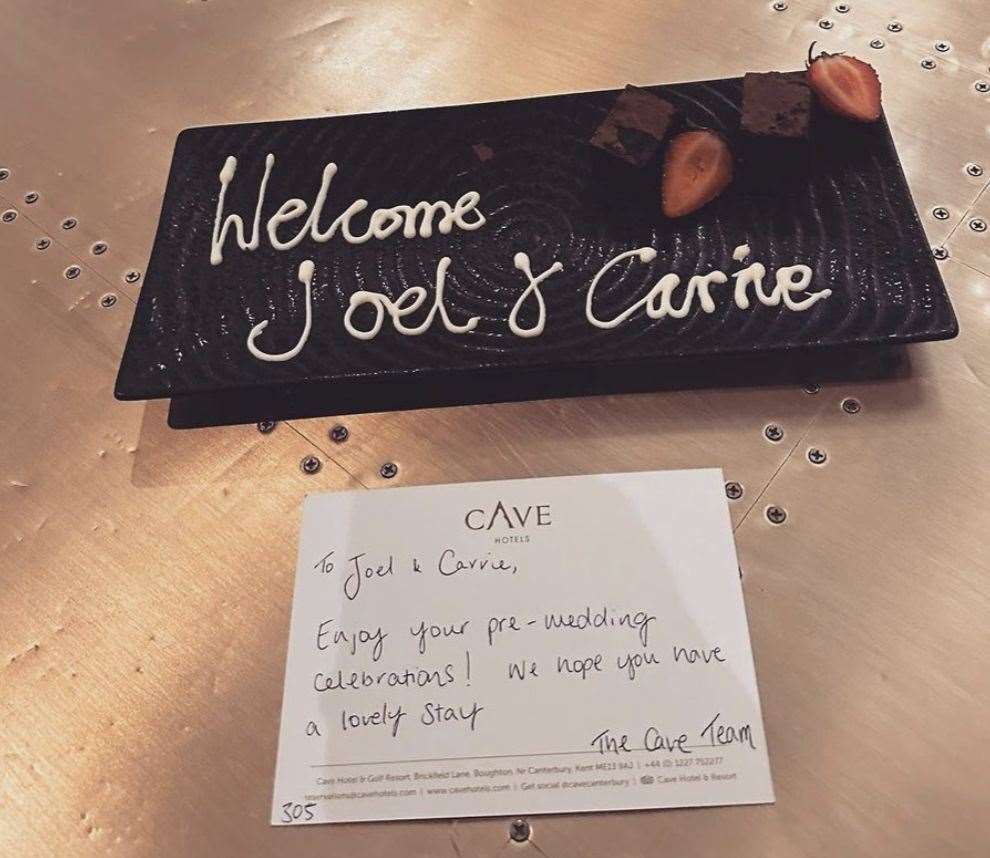 Welcome
Joel & Carrie
CAVE
HOTELS
To Joel & Carrie,
Enjoy your pre-wedding
celebrations! We hope you have
a lovely stay
The Cave Team
Cave Hotel & Golf Resort, Brickfield Lane, Boughton, Nr Canterbury, Kent ME13 9AJ | +44 (0) 1227 752277
reservations@cavehotels.com | www.cavehotels.com | Get social @cavecanterbury | Cave Hotel & Resort
305